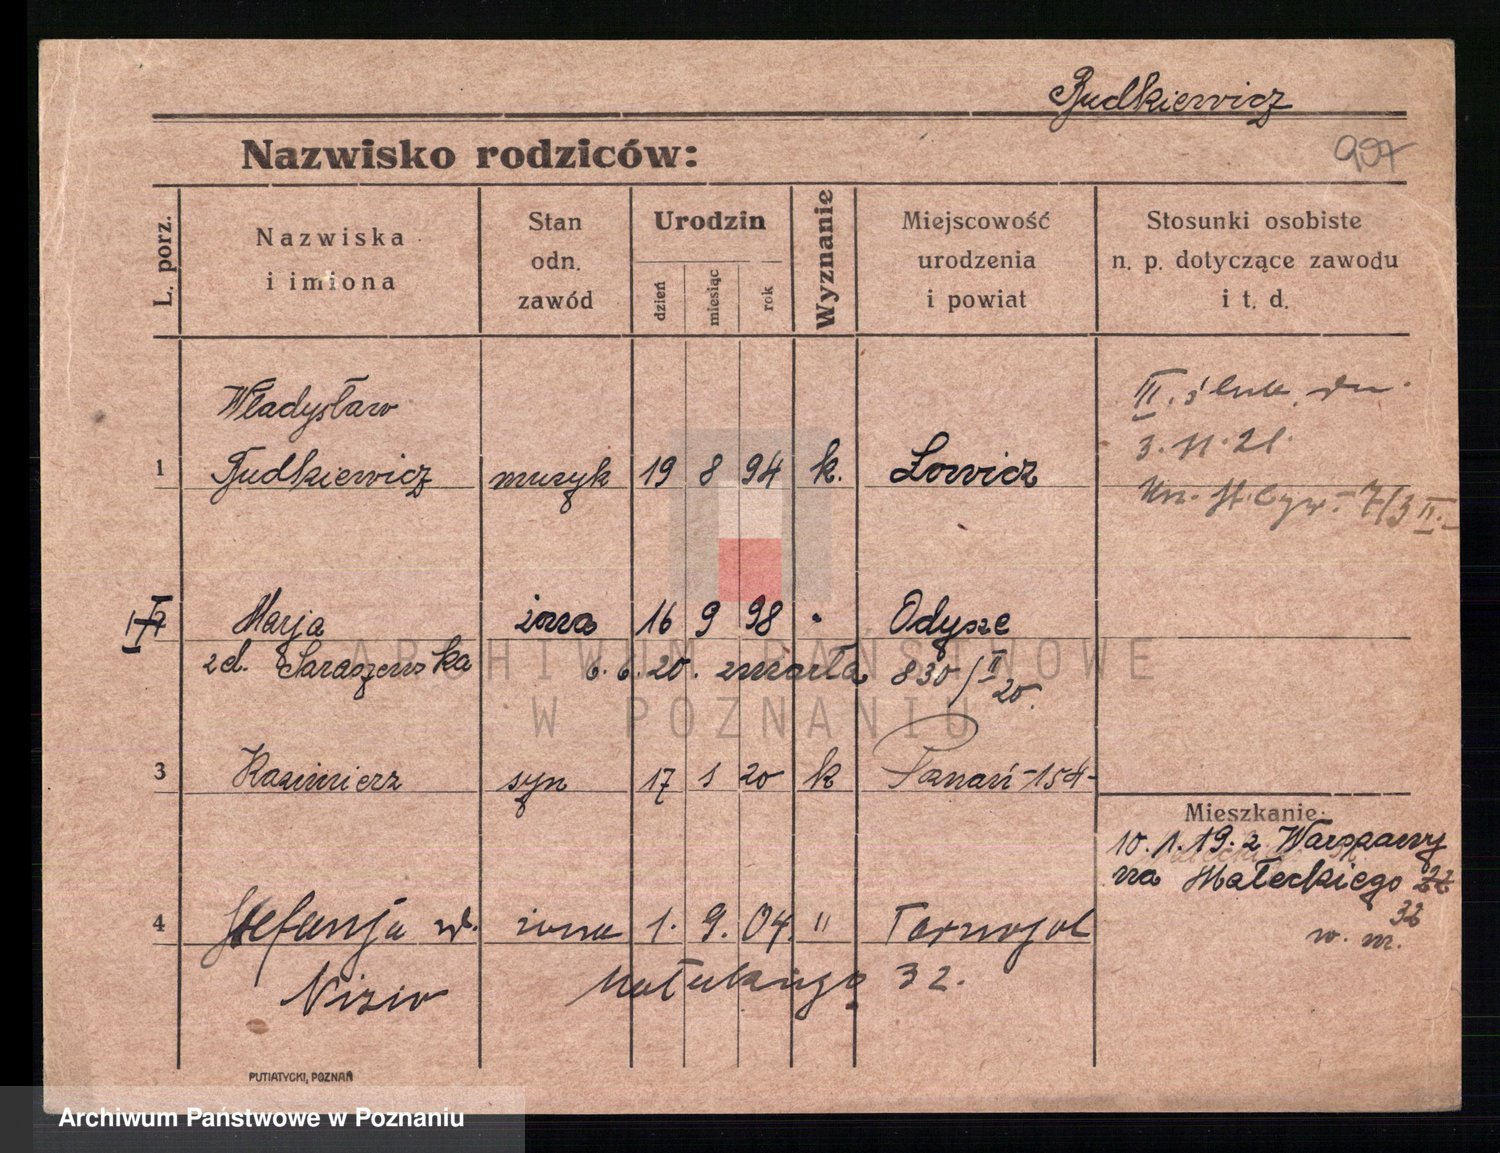 Budkiewicz
Nazwisko rodziców:
997
L. porz.
Nazwiska
i imiona
Stan
odn.
zawód
Urodzin
dzień
miesiąc
rok
Wyznanie
Miejscowość
urodzenia
i powiat
Stosunki osobiste
n. p. dotyczące zawodu
i t. d.
Władysław
1 Budkiewicz muzyk 19 8 94 k. Łowicz
III. dn.
3. 11. 21.
7/3 II.
Marja żona 16 9 98 " Odysze
zd. Saraszewska 6. 6. 20. zmarła 830/II 20.
3 Kazimierz syn 17 1 20 k Poznań - 154 -
Mieszkanie
10. 1. 19. z Warszawy
na Małeckiego 22
32
w. m.
4 Stefanja żona 1. 9. 04. "
Nizio Małeckiego 32.
PUTIATYCKI, POZNAŃ
ARCHIWUM PAŃSTWOWE
W POZNANIU
Archiwum Państwowe w Poznaniu